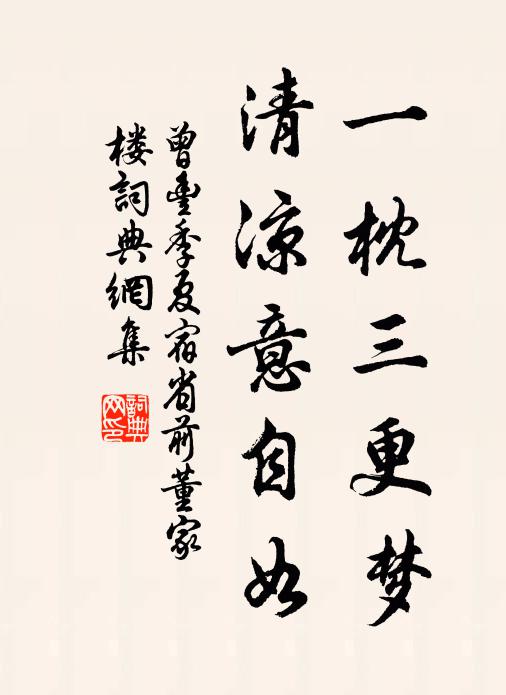 一枕三更梦
清凉意自如
曾豊季夏宿省前董家
楼詞典網集
詞典网印